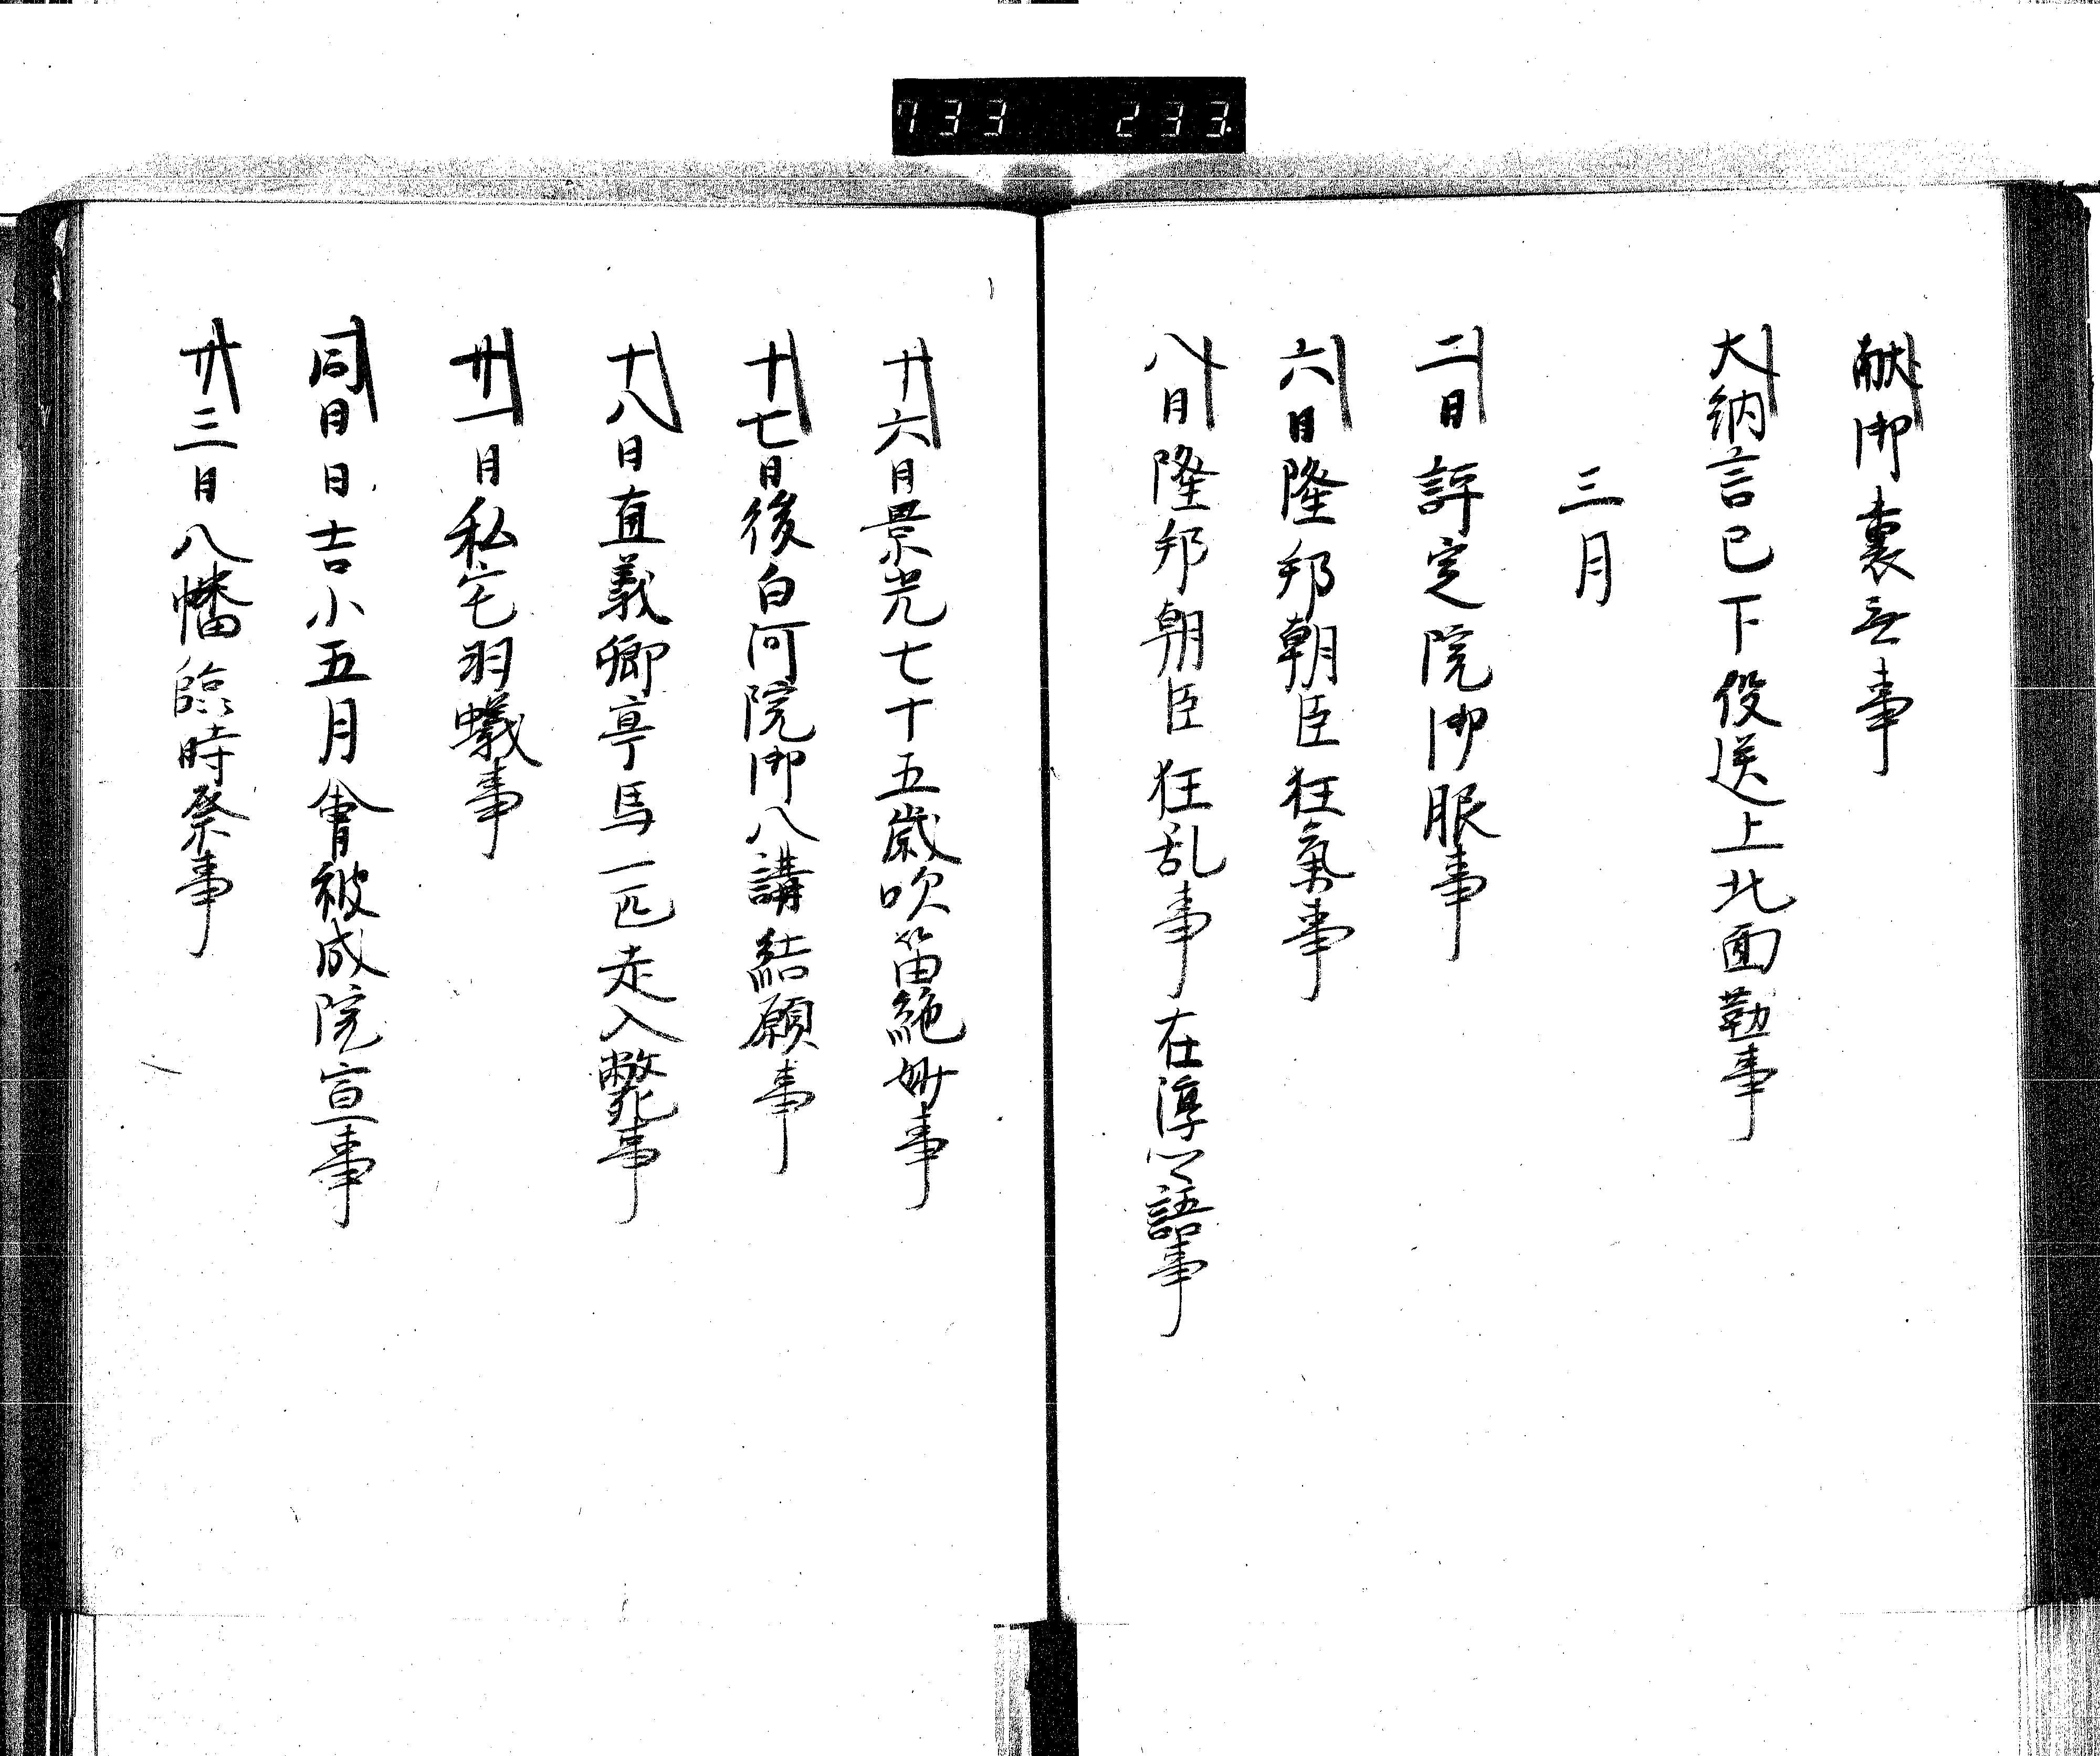 733 233
献御裏無事
大納言已下役送上北面勤事
三月
二日評定院御服事
六日隆邦朝臣狂氣事
八日隆邦朝臣狂乱事在淳卿語事
十六日景光七十五歳吹笛絶妙事
十七日後白河院御八講結願事
十八日直義卿亭馬一匹走入斃事
廿一日私宅羽蟻事
同日日吉小五月會被成院宣事
廿三日八幡臨時祭事